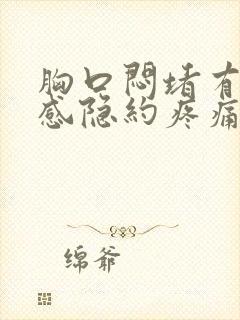 胸口闷堵有
感隐约疼痛
绵爷